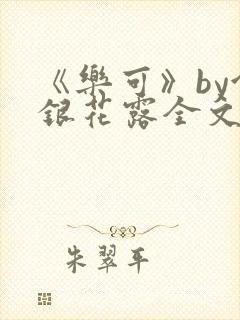 《樂可》by
銀花露全文
朱翠平